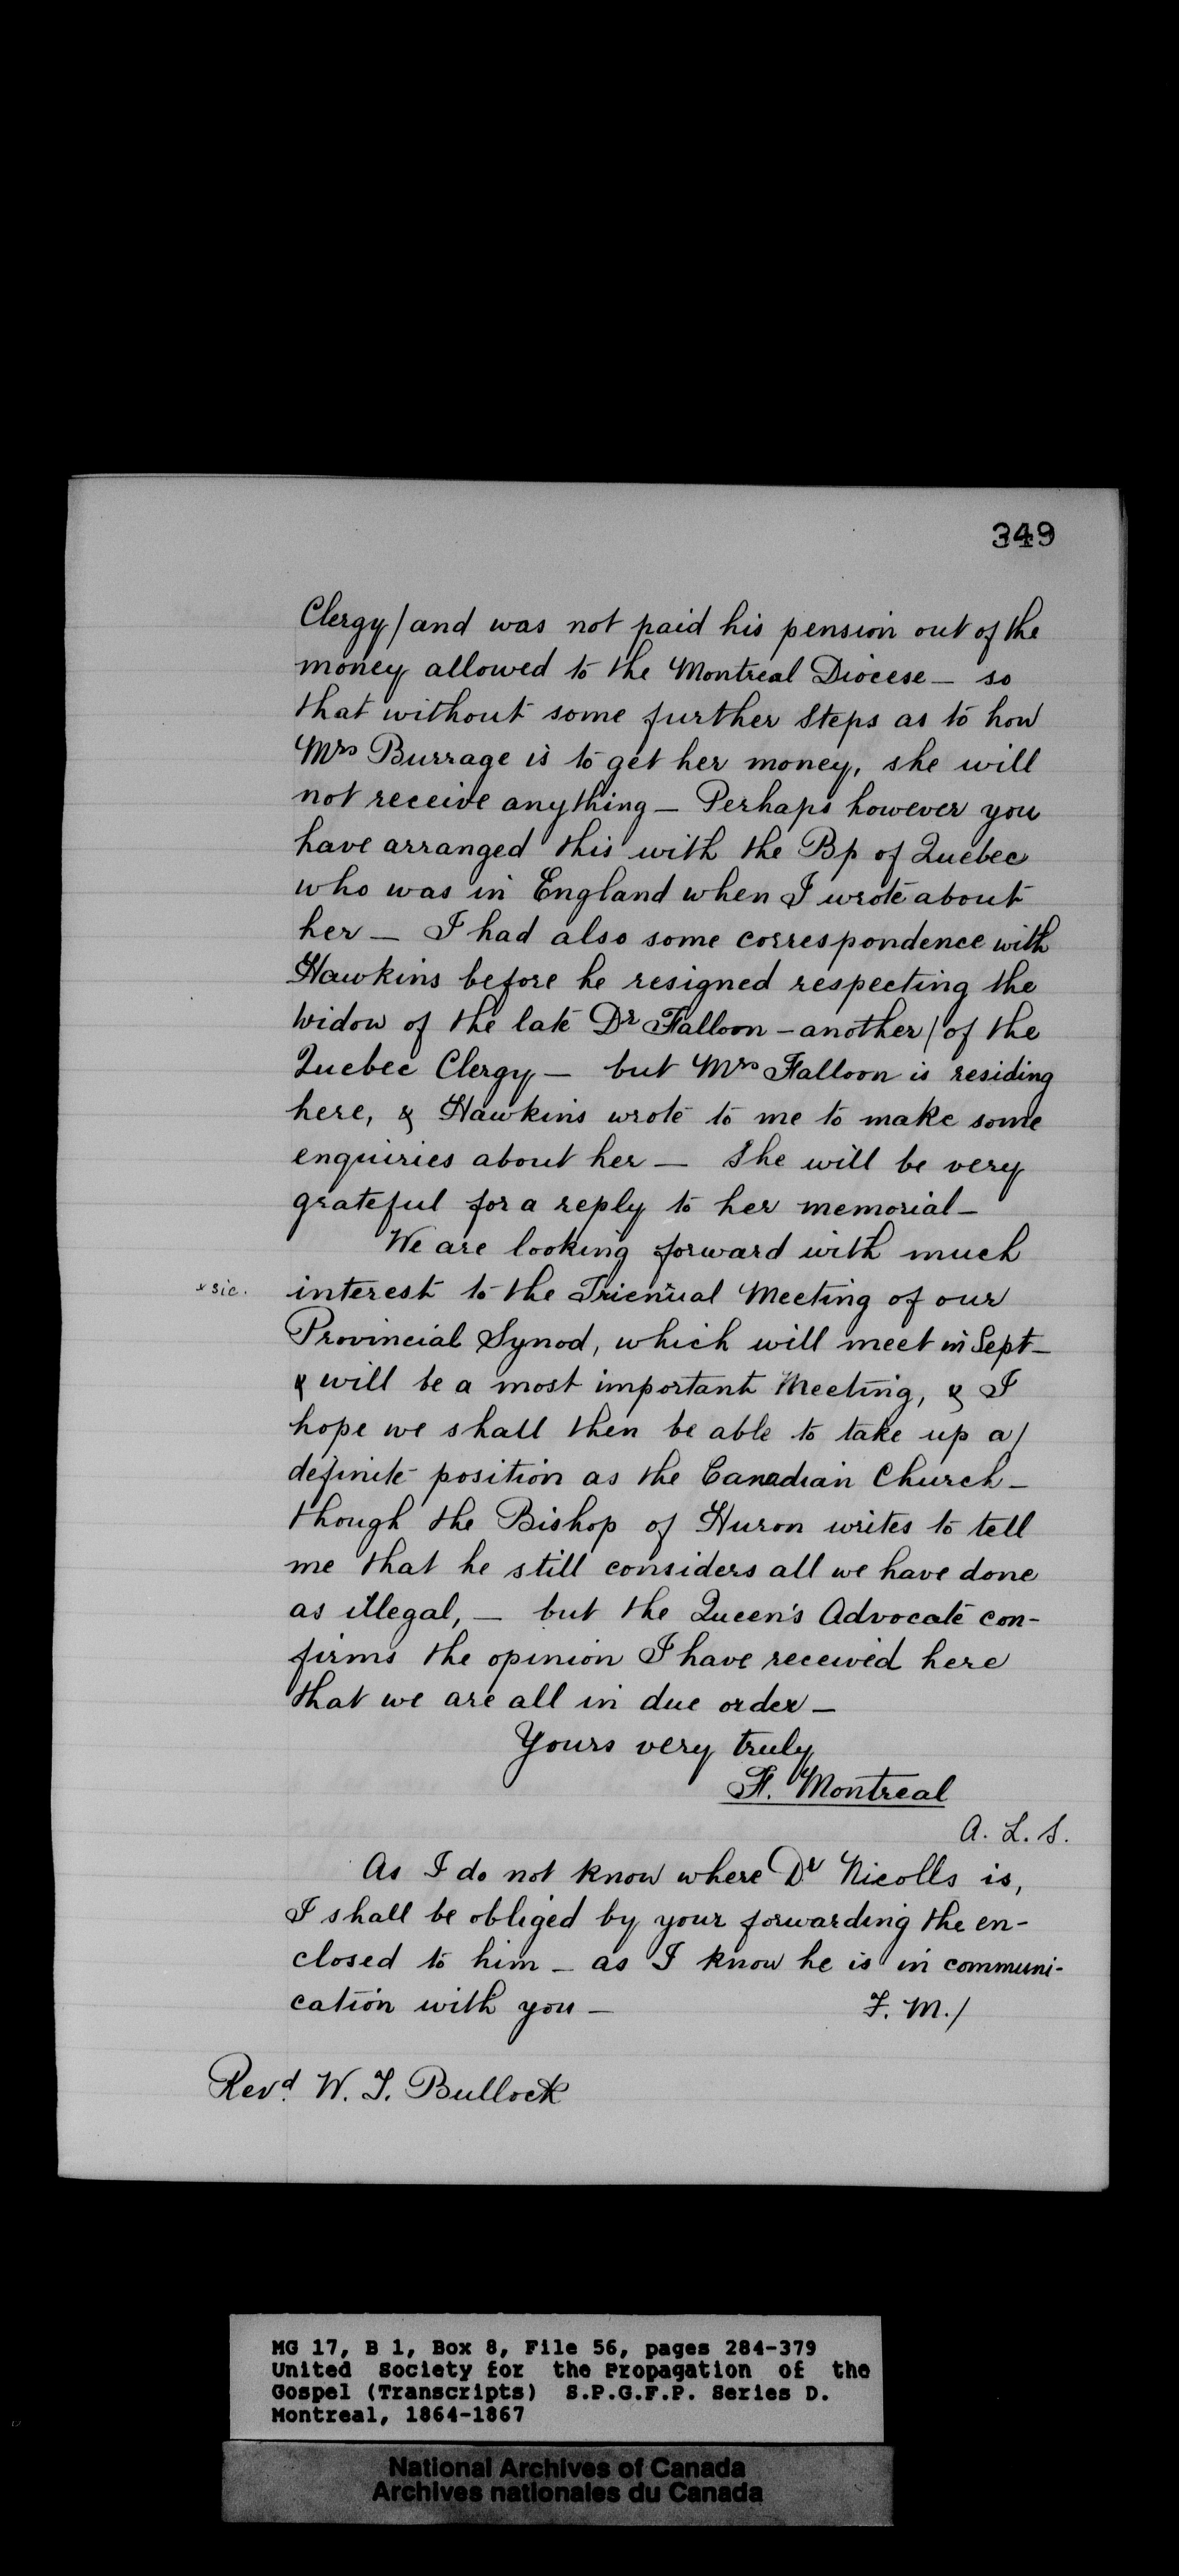 349
Clergy/and was not paid his pension out of the
money allowed to the Montreal Diocese — so
that without some further steps as to how
Mrs Burrage is to get her money, she will
not receive anything — Perhaps however you
have arranged this with the Bp of Quebec
who was in England when I wrote about
her — I had also some correspondence with
Hawkins before he resigned respecting the
Widow of the late Dr Falloon — another/of the
Quebec Clergy — but Mrs Falloon is residing
here, & Hawkins wrote to me to make some
enquiries about her — She will be very
grateful for a reply to her memorial —
We are looking forward with much
x sic. interest to the Trienual Meeting of our
Provincial Synod, which will meet in Sept —
& will be a most important Meeting, & I
hope we shall then be able to take up a/
definite position as the Canadian Church —
though the Bishop of Huron writes to tell
me that he still considers all we have done
as illegal, — but the Queen's Advocate con-
firms the opinion I have received here
that we are all in due order —
Yours very truly
F. Montreal
A. L. S.
As I do not know where Dr Nicolls is,
I shall be obliged by your forwarding the en-
closed to him — as I know he is in communi-
cation with you — F. M./
Revd. W. T. Bullock
MG 17, B 1, Box 8, File 56, pages 284-379
United Society for the Propagation of the
Gospel (Transcripts) S.P.G.F.P. Series D.
Montreal, 1864-1867
National Archives of Canada
Archives nationales du Canada